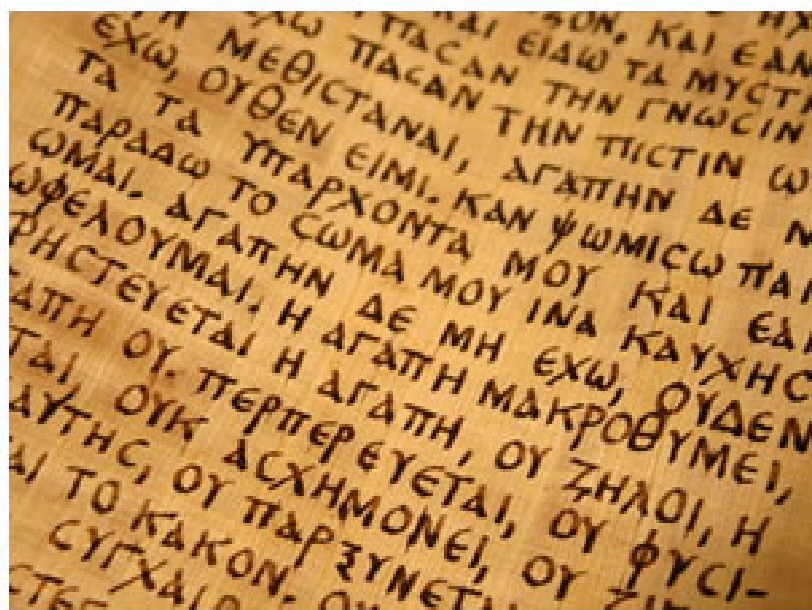 ΚΑΙ ΕΑΝ
ΚΑΙ ΕΙΔΩ ΤΑ ΜΥCΤ
ΠΑCΑΝ ΤΗΝ ΓΝΩCΙΝ
ΕΧΩ ΠΑCΑΝ ΤΗΝ ΠΙCΤΙΝ Ω
ΡΗ ΜΕΘΙCΤΑΝΑΙ, ΑΓΑΠΗΝ ΔΕ Μ
ΕΧΩ, ΟΥΘΕΝ ΕΙΜΙ. ΚΑΝ ΨΩΜΙCΩ ΠΑ
ΤΑ ΤΑ ΥΠΑΡΧΟΝΤΑ ΜΟΥ ΚΑΙ ΕΑΝ
ΠΑΡΑΔΩ ΤΟ CΩΜΑ ΜΟΥ ΙΝΑ ΚΑΥΧΗC
ΩΜΑΙ. ΑΓΑΠΗΝ ΔΕ ΜΗ ΕΧΩ, ΟΥΔΕΝ
ΩΦΕΛΟΥΜΑΙ. Η ΑΓΑΠΗ ΜΑΚΡΟΘΥΜΕΙ,
ΡΗCΤΕΥΕΤΑΙ Η ΑΓΑΠΗ, ΟΥ ΖΗΛΟΙ, Η
ΓΑΠΗ ΟΥ. ΠΕΡΠΕΡΕΥΕΤΑΙ, ΟΥ ΦΥCΙ-
ΤΑΙ, ΟΥΚ ΑCΧΗΜΟΝΕΙ, ΟΥ
ΑΥΤΗC, ΟΥ ΠΑΡΞΥΝΕΤΑ
ΑΙ ΤΟ ΚΑΚΟΝ. ΟΥ
CΥΓΧΑΙΡ
CΤΕ